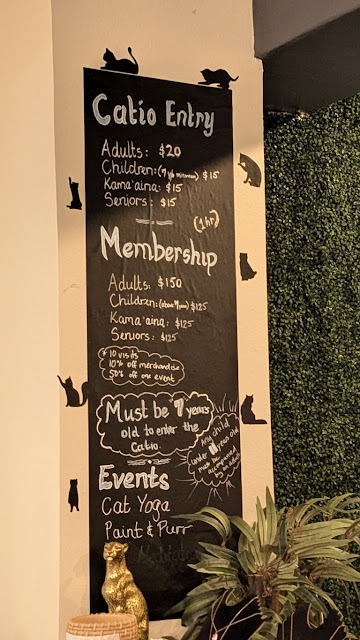 Catio Entry
Adults: $20
Children: (7 y/o minimum) $15
Kama'aina: $15
Seniors: $15
(1hr)
Membership
Adults: $150
Children: (above 7 years) $125
Kama'aina: $125
Seniors: $125
* 10 visits
10% off merchandise
50% off one event
Must be 7 years
old to enter the
Catio.
Any child
under years old
must be
accompanied
by an adult
Events
Cat Yoga
Paint & Purr